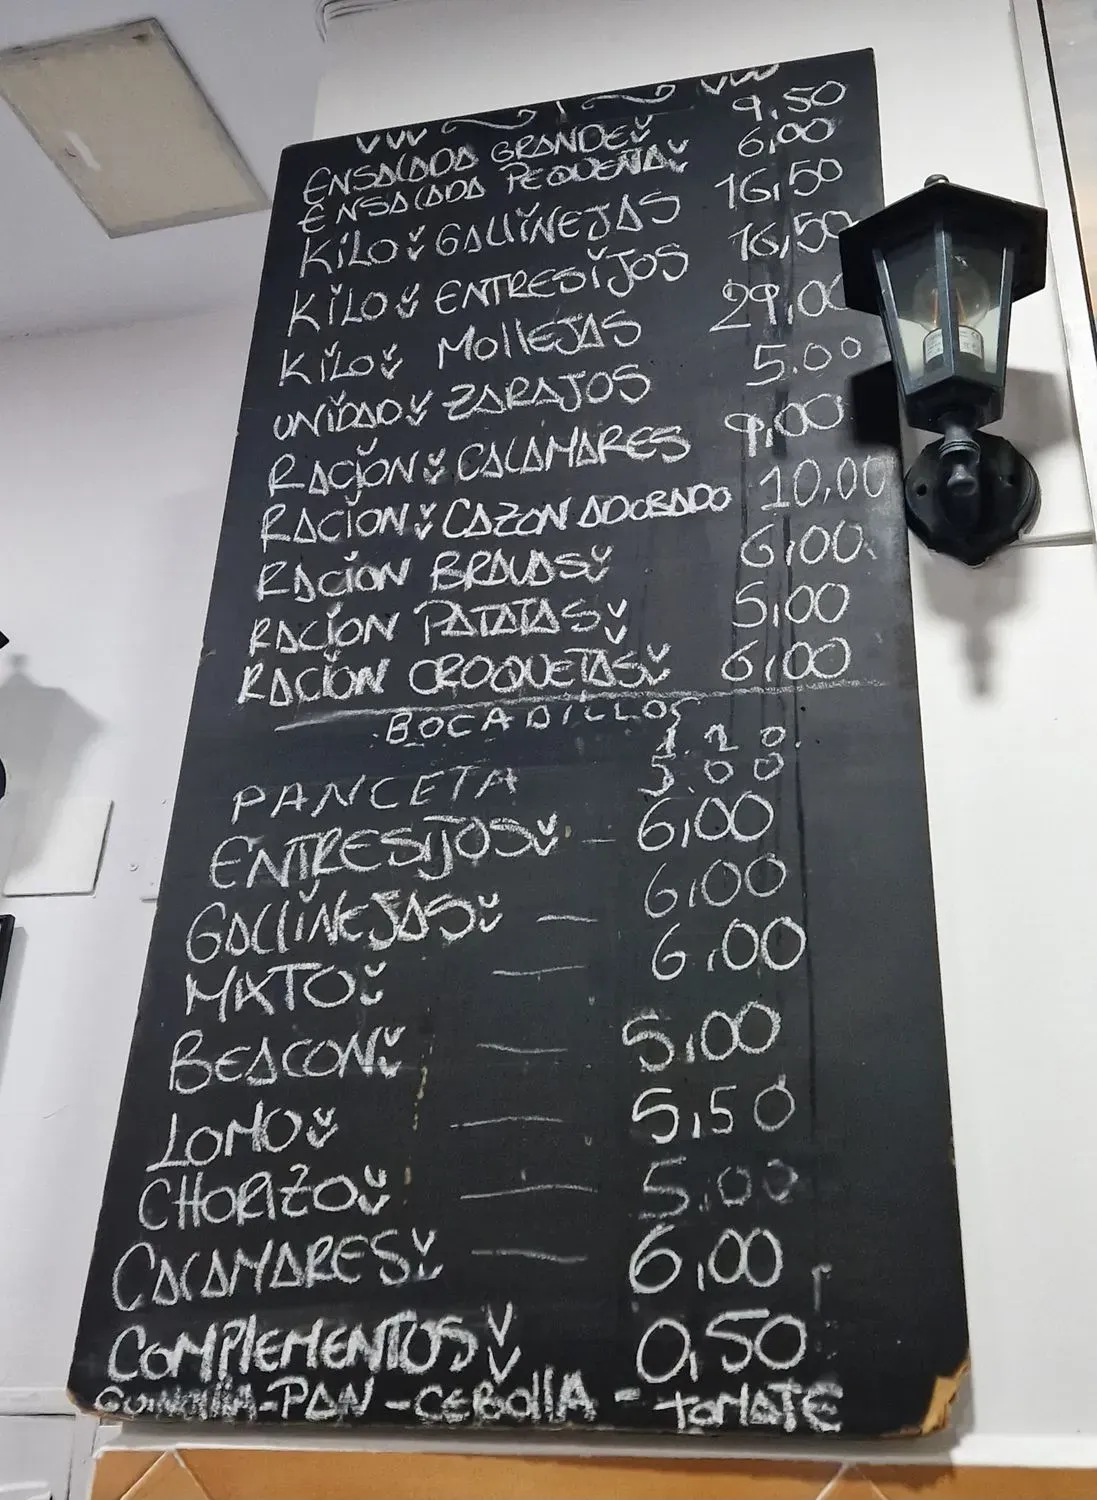 ENSALADA GRANDE 9,50
ENSALADA PEQUEÑA 6,00
KILO GALLINEJAS 16,50
KILO ENTRESIJOS 16,50
KILO MOLLEJAS 29,00
UNIDAD ZARAJOS 5.00
RACION CALAMARES 9,00
RACION CAZON ADOBADO 10,00
RACION BRAVAS 6,00
RACION PATATAS 5,00
RACION CROQUETAS 6,00
BOCADILLOS
PANCETA 5.00
ENTRESIJOS - 6,00
GALLINEJAS — 6,00
MIXTO — 6,00
BEACON — 5,00
LOMO — 5,50
CHORIZO — 5,00
CALAMARES — 6,00
COMPLEMENTOS 0,50
GUINDILLA-PAN-CEBOLLA-TOMATE